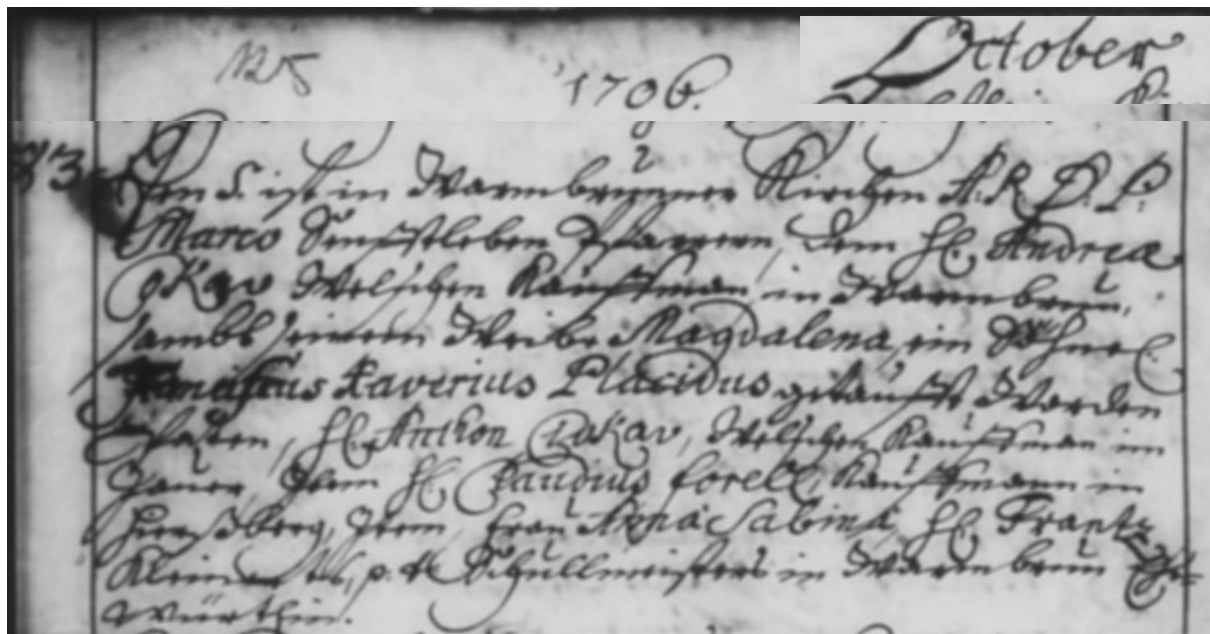 October
1706.
83. Den 5. ist in Warmbrunner Kirchen A. R. D. P.
Marco Senfftleben Pfarrern, dem H. Andrea
Welschen Kauffman in Warmbrun,
sambt seinem Weibe Magdalena, ein Söhnel
Franciscus Xaverius Placidus getaufft worden
Pathen, H. Anthon Welschen Kauffman in
Jauer, Item H. Claudius Forell, Kauffmann in
Hirschberg, Item, Frau Anna Sabina, H. Frantz
Schullmeisters in Warmbrun Ehe-
würthin.